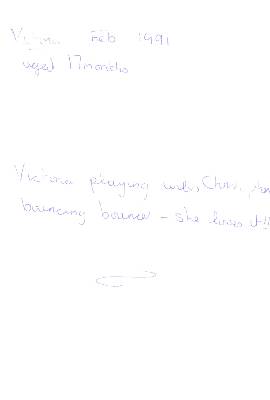 Victoria Feb 1991
aged 17 months
Victoria playing with Chris,
bouncing bounce - she loves it!!